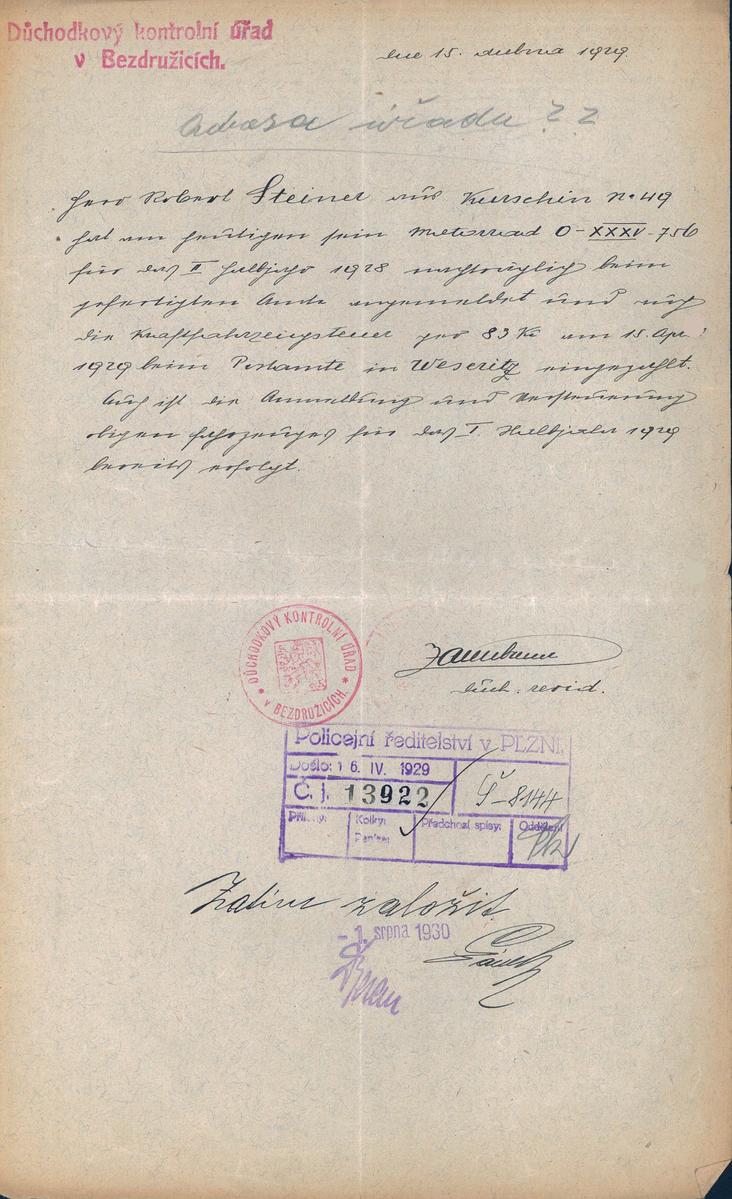 Důchodkový kontrolní úřad
v Bezdružicích.
dne 15. dubna 1929.
Adresa úřadu ??
Herr Robert Steiner aus Kurschin No 49
hat am heutigen sein Motorrad O-XXXV-756
für das II Halbjahr 1928 nachträglich beim
gefertigten Amte angemeldet und auch
die Kraftfahrzeugsteuer per 83 Kč am 15. Apr.
1929 beim Postamte in Weseritz eingezahlt.
Auch ist die Anmeldung und Versteuerung
obigen Fahrzeuges für das I. Halbjahr 1929
bereits erfolgt.
DŮCHODKOVÝ KONTROLNÍ ÚŘAD
* v BEZDRUŽICÍCH. *
důch. revid.
Policejní ředitelství v PLZNI.
Došlo: 16. IV. 1929
Č. j. 13922
Š-8144
Přílohy: Kolky: Předchozí spisy: Oddělení
Peníze:
Zatím založit
-1. srpna 1930